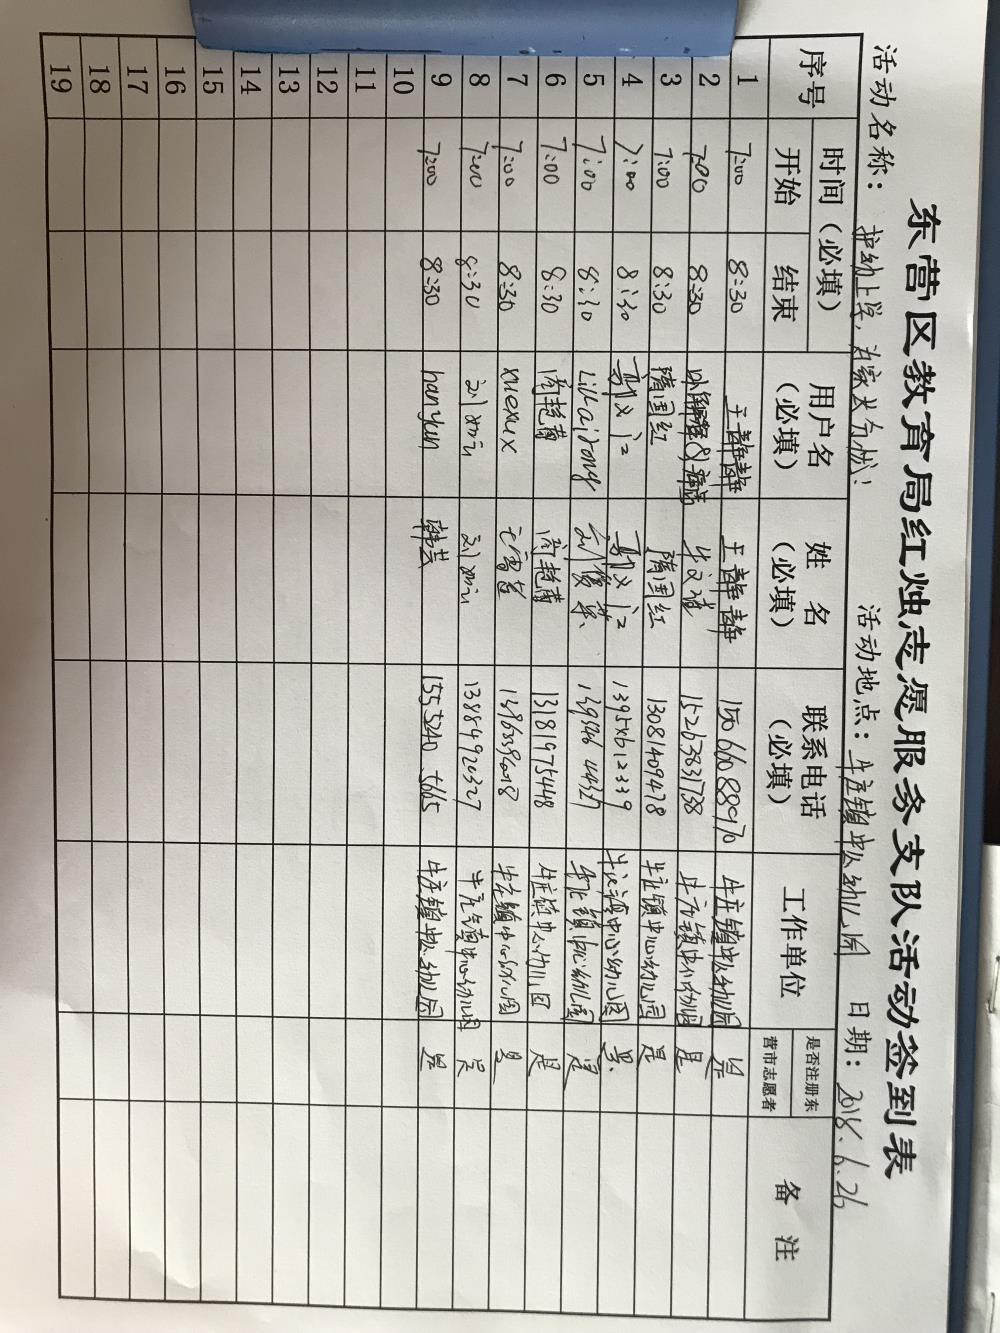 东营区教育局红烛志愿服务支队活动签到表
活动名称： 护幼上学，为家长分忧！ 活动地点：牛庄镇中心幼儿园 日期：2018.6.26
序号 时间（必填） 用户名（必填） 姓名（必填） 联系电话（必填） 工作单位 是否注册东营市志愿者 备注
开始 结束
1 7:00 8:30 王静静 王静静 15066088970 牛庄镇中心幼儿园 是
2 7:00 8:30 牛文靖 15263831788 牛庄镇中心幼儿园 是
3 7:00 8:30 隋国红 隋国红 13081409478 牛庄镇中心幼儿园 是
4 7:00 8:30 郭文江 郭文江 牛庄镇中心幼儿园 是
5 7:00 8:30 牛庄镇中心幼儿园 是
6 7:00 8:30 周艳茜 周艳茜 13181975448 牛庄镇中心幼儿园 是
7 7:00 8:30 xuexux 牛庄镇中心幼儿园 是
8 7:00 8:30 13884992327 牛庄镇中心幼儿园 是
9 7:00 8:30 hanyun 韩芸 15552405665 牛庄镇中心幼儿园 是
10
11
12
13
14
15
16
17
18
19